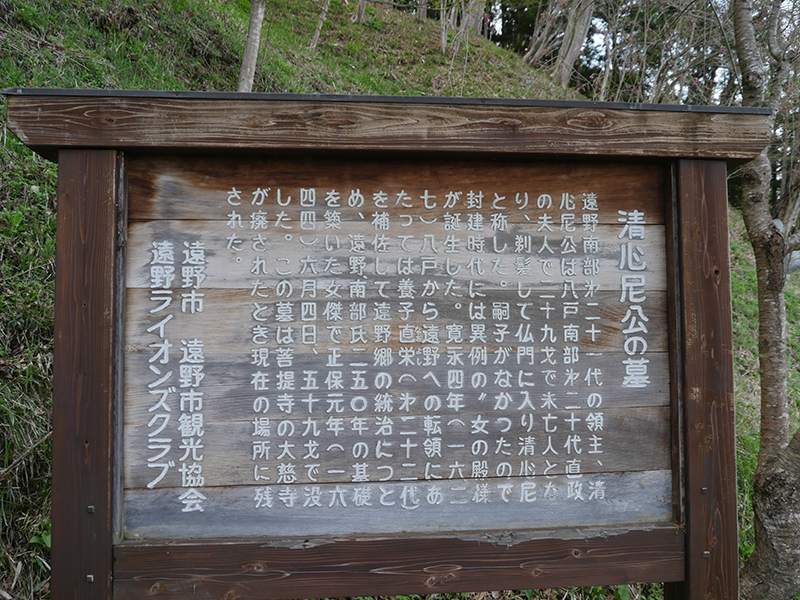 清心尼公の墓
遠野南部㐧二十一代の領主、清
心尼公は八戸南部㐧二十代直政
の夫人で二十九才で未亡人とな
り、剃髪して仏門に入り清心尼
と称した。嗣子がなかつたので
封建時代には異例の〝女の殿様〟
が誕生した。寛永四年（一六二
七）八戸から遠野への転領にあ
たっては養子直栄（㐧二十二代）
を補佐して遠野郷の統治につと
め、遠野南部氏二五〇年の基礎
を築いた女傑で正保元年（一六
四四）六月四日、五十九才で没
した。この墓は菩提寺の大慈寺
が廃されたとき現在の場所に残
された。
遠野市　遠野市観光協会
遠野ライオンズクラブ